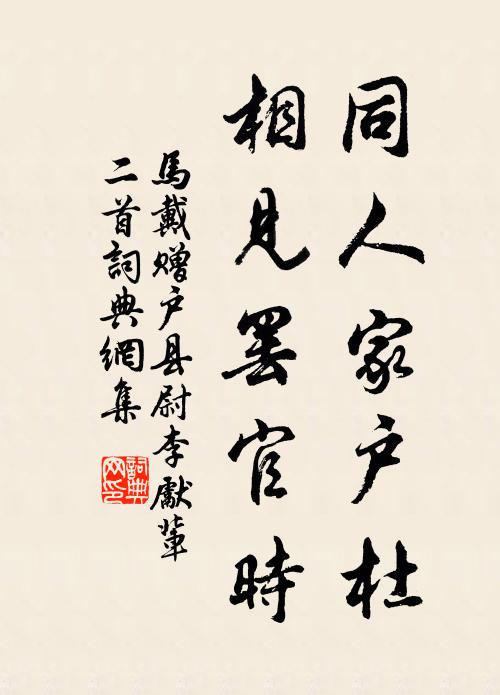 同人家户杜
相見罷官時
馬戴赠户县尉李獻輩
二首詞典網集
詞典
网印